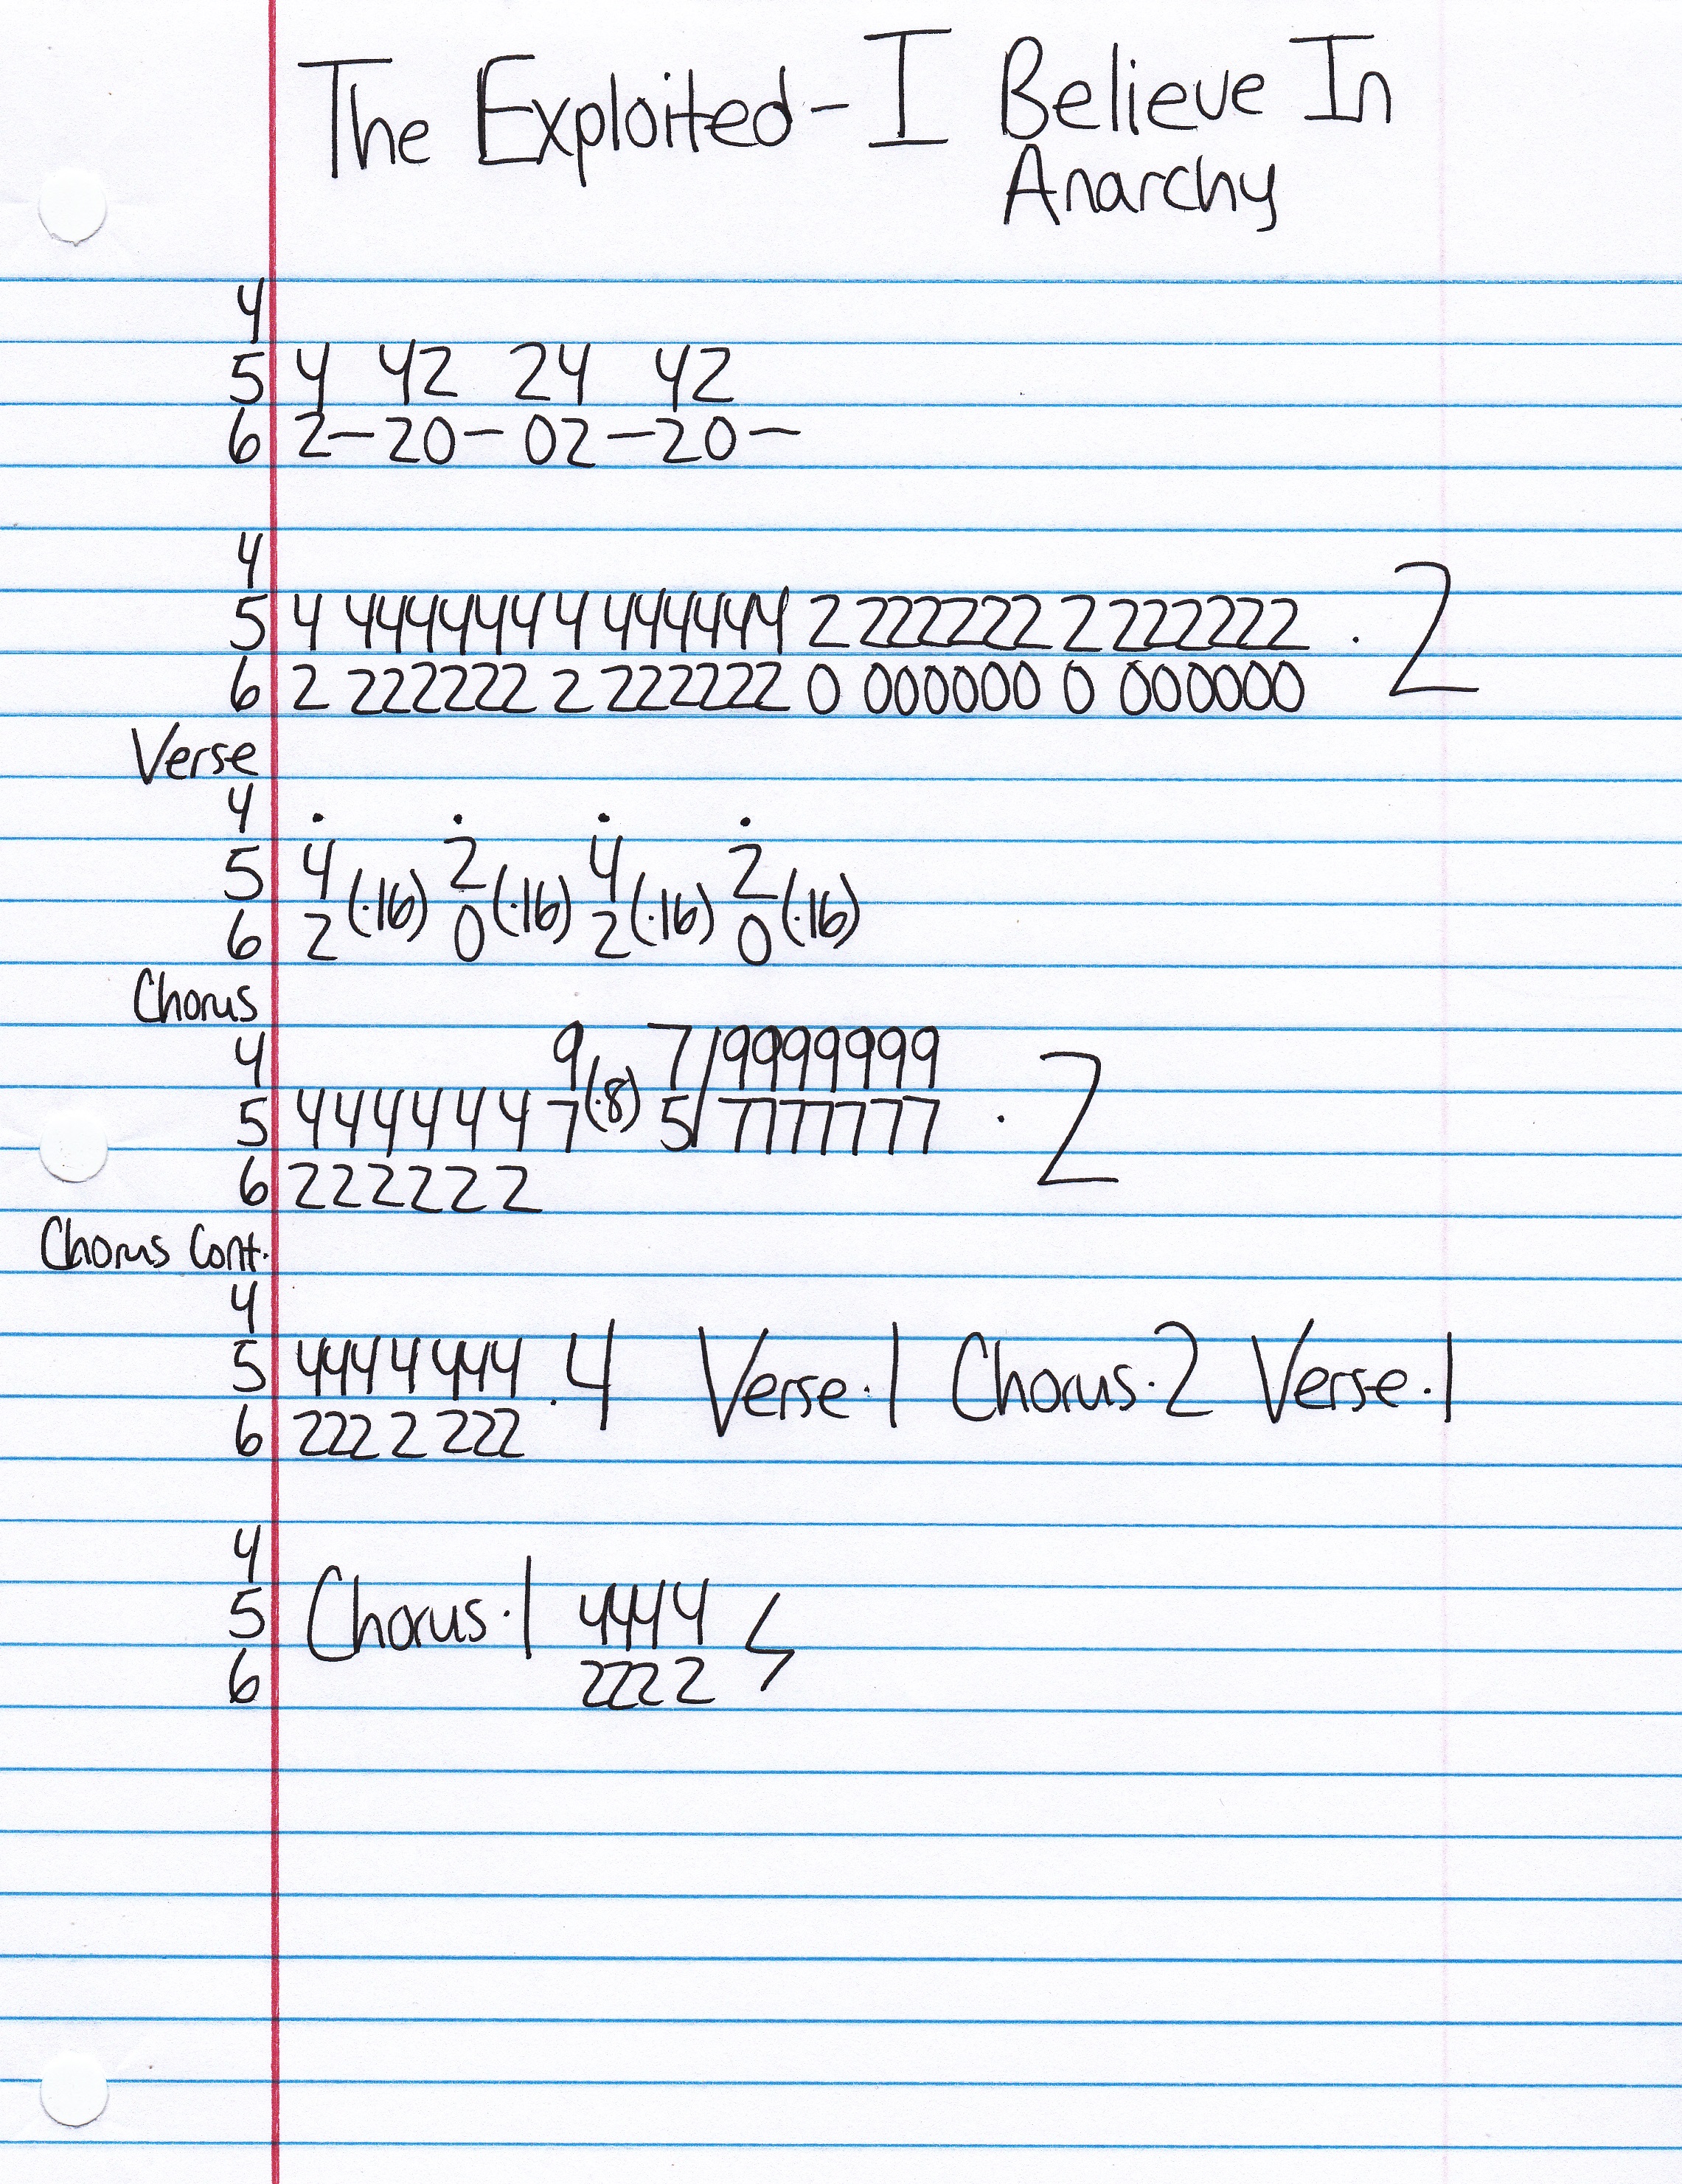 The Exploited - I Believe In
Anarchy
4
5 4 42 24 42
6 2—20—02—20—
4
5 4 444444 4 444444 2 222222 2 222222 · 2
6 2 222222 2 222222 0 000000 0 000000
Verse
4 . . . .
5 4 (·16) 2 (·16) 4 (·16) 2 (·16)
6 2 0 2 0
Chorus
4 9 (·8) 7/9999999
5 444444 7 5/7777777 · 2
6 222222
Chorus Cont.
4
5 4444 444 · 4 Verse·1 Chorus·2 Verse·1
6 2222 222
4
5 Chorus·1 4444
6 2222